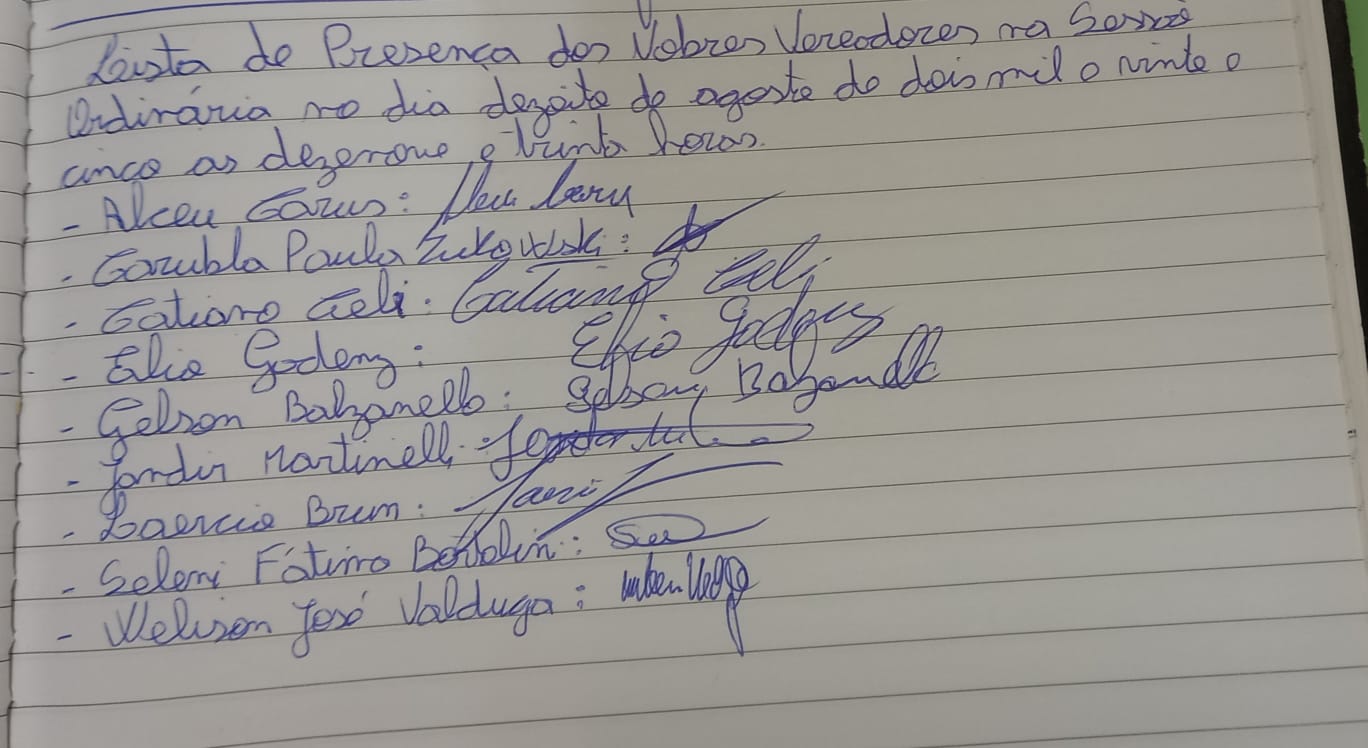 Lista de Presença dos Nobres Vereadores na Sessão
Ordinária no dia dezoito de agosto de dois mil e vinte e
cinco as dezenove e trinta horas.
- Alceu Garus:
- Carubla Paula Zukowski:
- Catiano Celi: Catiano Celi
- Elio Godenz: Elio
- Gelson Balzanello: Gelson
- Jandir Martinelli:
- Laercio Brum:
- Seleni Fátima Bortolin:
- Welison José Valduga: